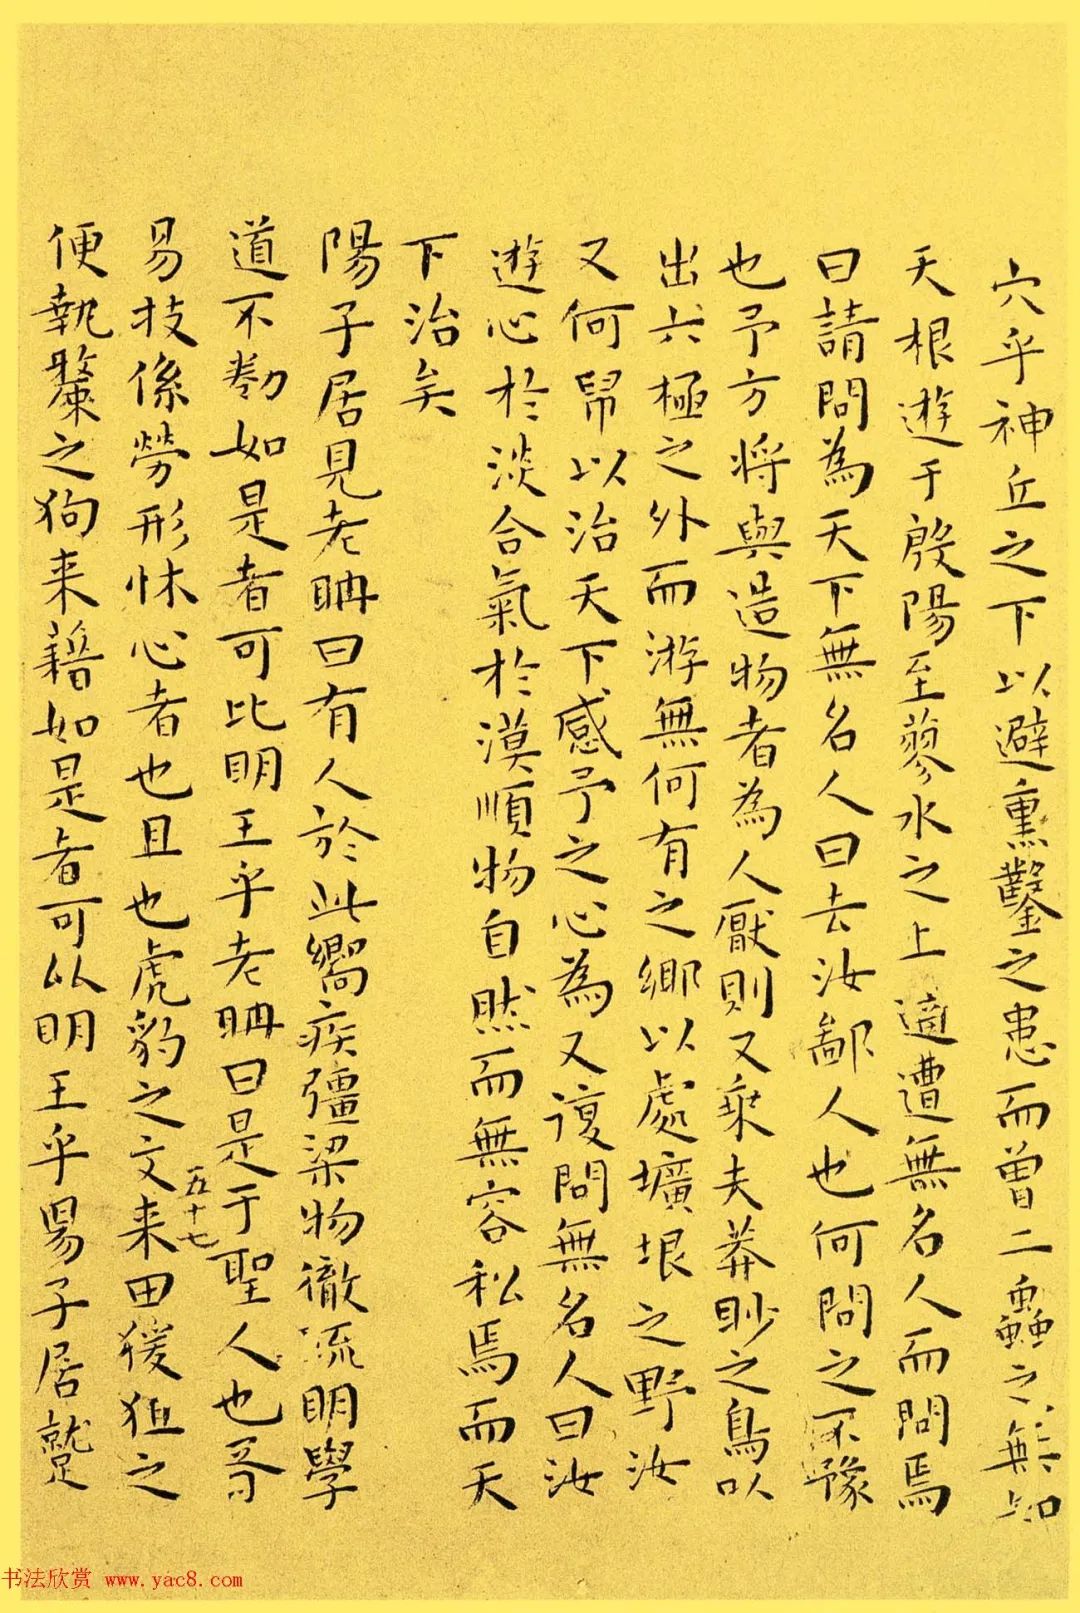 穴乎神丘之下以避熏鑿之患而曾二蟲之無知
天根遊于殷陽至蓼水之上適遭無名人而問焉
曰請問為天下無名人曰去汝鄙人也何問之不豫
也予方将與造物者為人厭則又乗夫莽眇之鳥以
出六極之外而游無何有之鄉以處壙垠之野汝
又何帠以治天下感予之心為又復問無名人曰汝
遊心於淡合氣於漠順物自然而無容私焉而天
下治矣
陽子居見老聃曰有人於此嚮疾彊梁物徹流明學
道不勌如是者可比明王乎老聃曰是于聖人也胥
易技係勞形怵心者也且也虎豹之文来田猨狙之
便執斄之狗来藉如是者可以明王乎陽子居蹵
五十七
书法欣赏 www.yac8.com